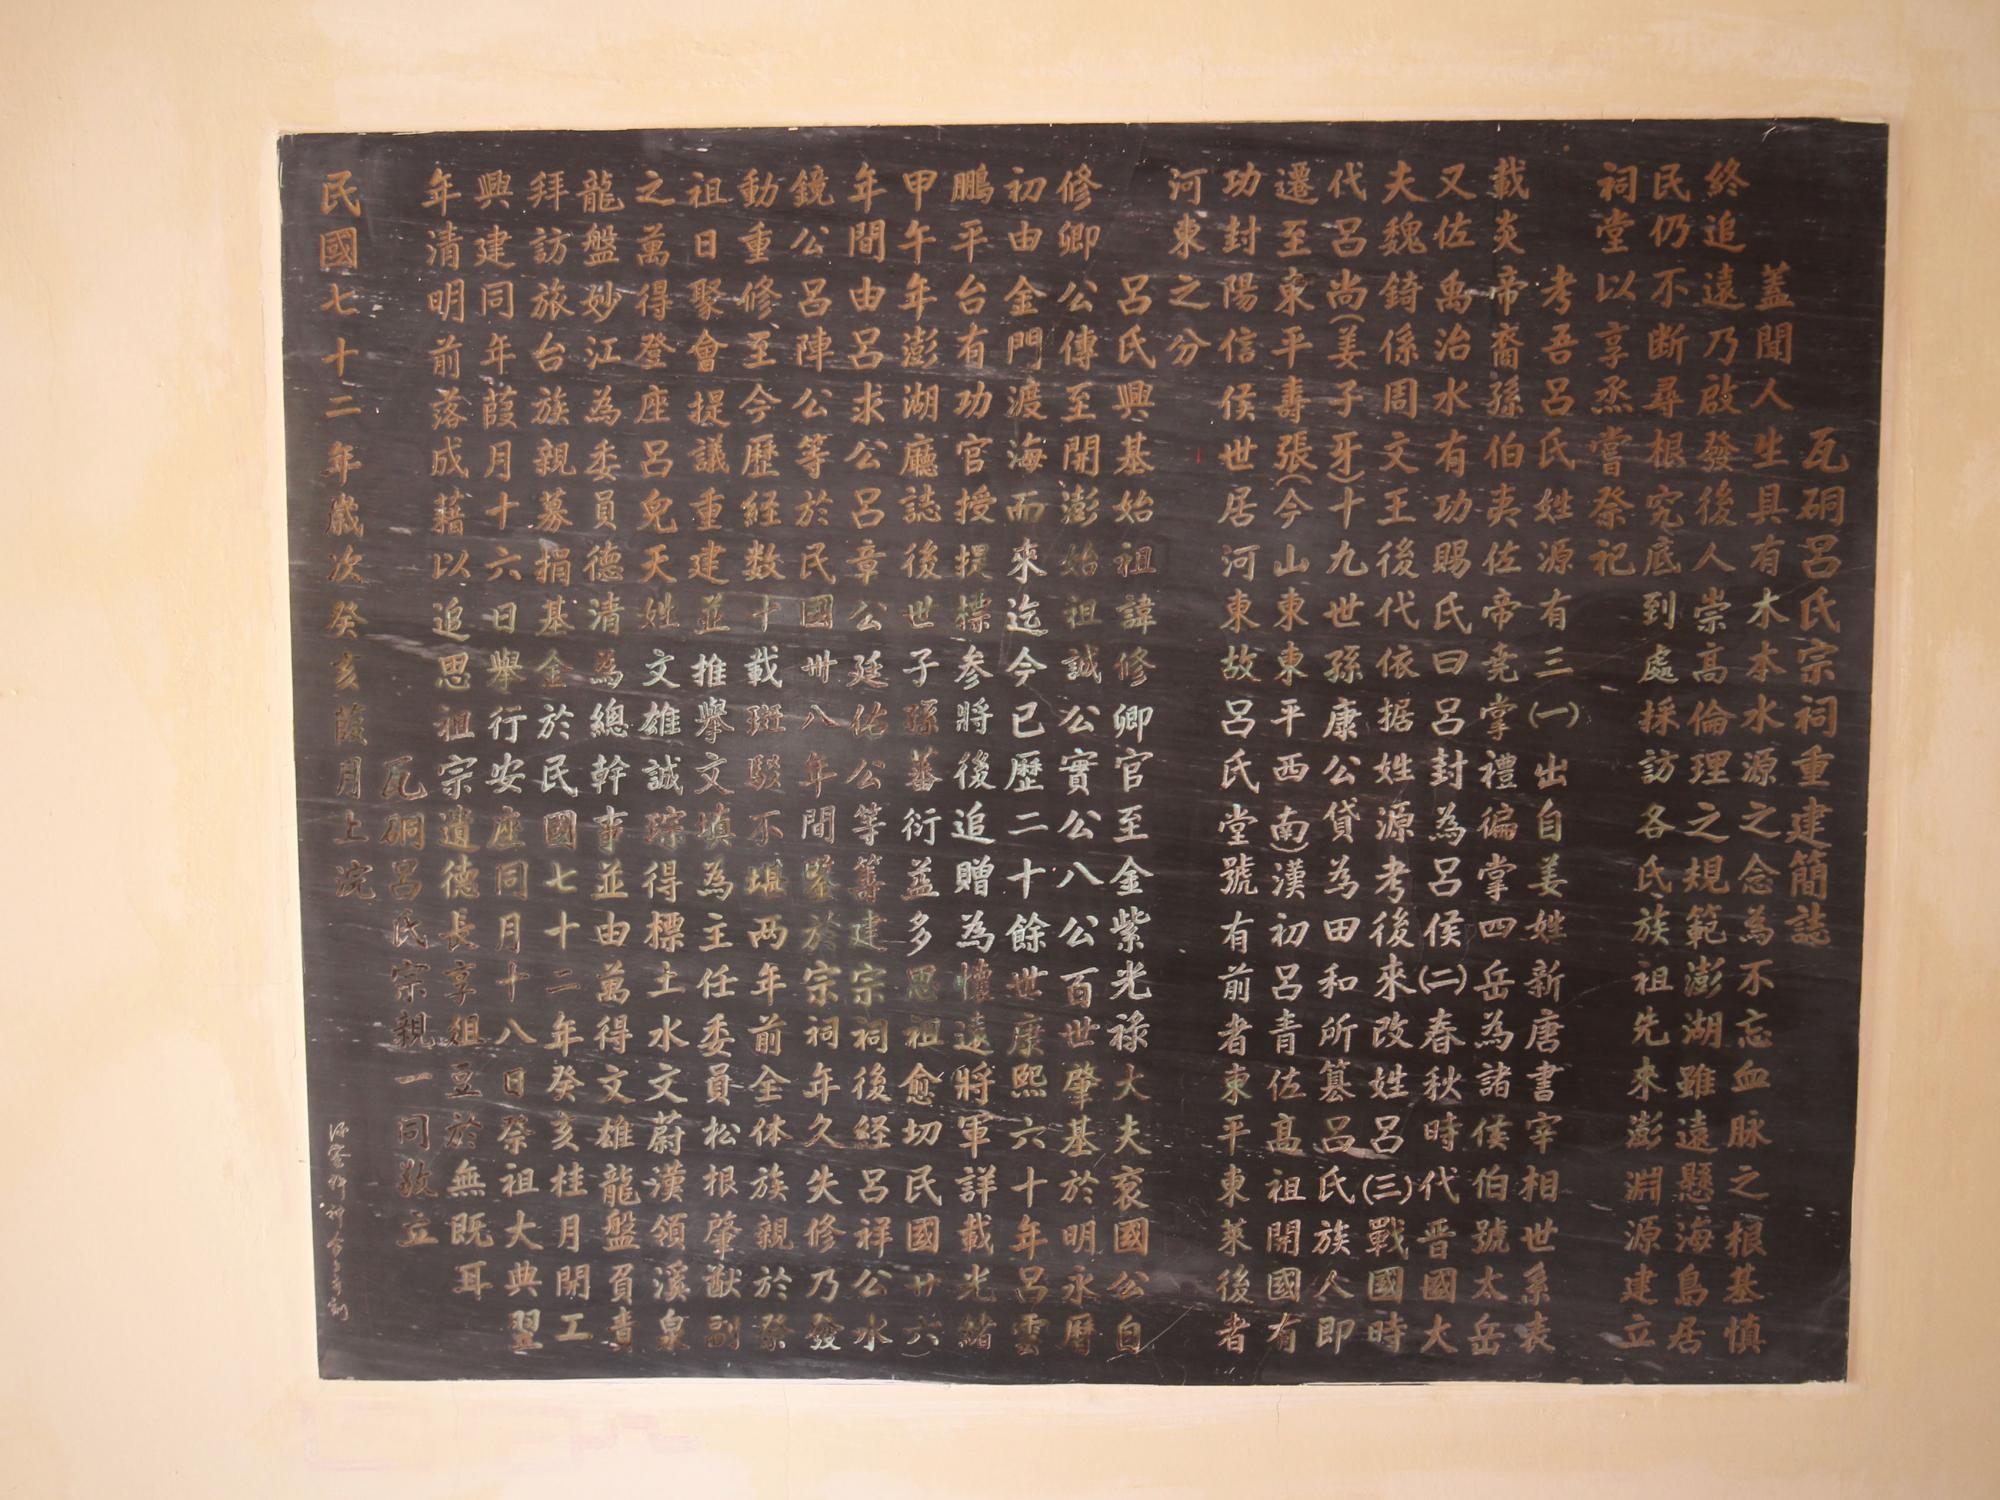 瓦硐呂氏宗祠重建簡誌
蓋聞人生具有木本水源之念為不忘血脉之根基慎
終追遠乃啟發後人崇高倫理之規範澎湖雖遠懸海島居
民仍不断尋根究底到處採訪各氏族祖先來澎淵源建立
祠堂以享烝嘗祭祀
考吾呂氏姓源有三㈠出自姜姓新唐書宰相世系表
載炎帝裔孫伯夷佐帝堯掌禮徧掌四岳為諸侯伯號太岳
又佐禹治水有功賜氏曰呂封為呂侯㈡春秋時代晋國大
夫魏錡係周文王後代依据姓源考後來改姓呂㈢戰國時
代呂尚(姜子牙)十九世孫康公貸為田和所篡呂氏族人即
遷至東平壽張(今山東東平西南)漢初呂青佐高祖開國有
功封陽信侯世居河東故呂氏堂號有前者東平東萊後者
河東之分
呂氏興基始祖諱修卿官至金紫光祿大夫衮國公自
修卿公傳至開澎始祖誠公實公八公百世肇基於明永曆
初由金門渡海而來迄今已歷二十餘世康熙六十年呂雲
鵬平台有功官授提標参將後追贈為懷遠將軍詳載光緒
甲午年澎湖廳誌後世子孫蕃衍益多思祖愈切民國廿六
年間由呂求公呂章公廷佑公等籌建宗祠後経呂祥公水
鏡公呂陣公等於民國卅八年間鑒於宗祠年久失修乃發
動重修至今歷経数十載斑駁不堪两年前全体族親於祭
祖日聚會提議重建並推舉文填為主任委員松根肇猷副
之萬得登座呂兒天姓文雄誠琮得標土水文蔚漢領溪泉
龍盤妙江為委員德清為總幹事並由萬得文雄龍盤負責
拜訪旅台族親募捐基金於民國七十二年癸亥桂月開工
興建同年葭月十六日舉行安座同月十八日祭祖大典翌
年清明前落成藉以追思祖宗遺德長享俎豆於無既耳
瓦硐呂氏宗親一同敬立
民國七十二年歲次癸亥葭月上浣